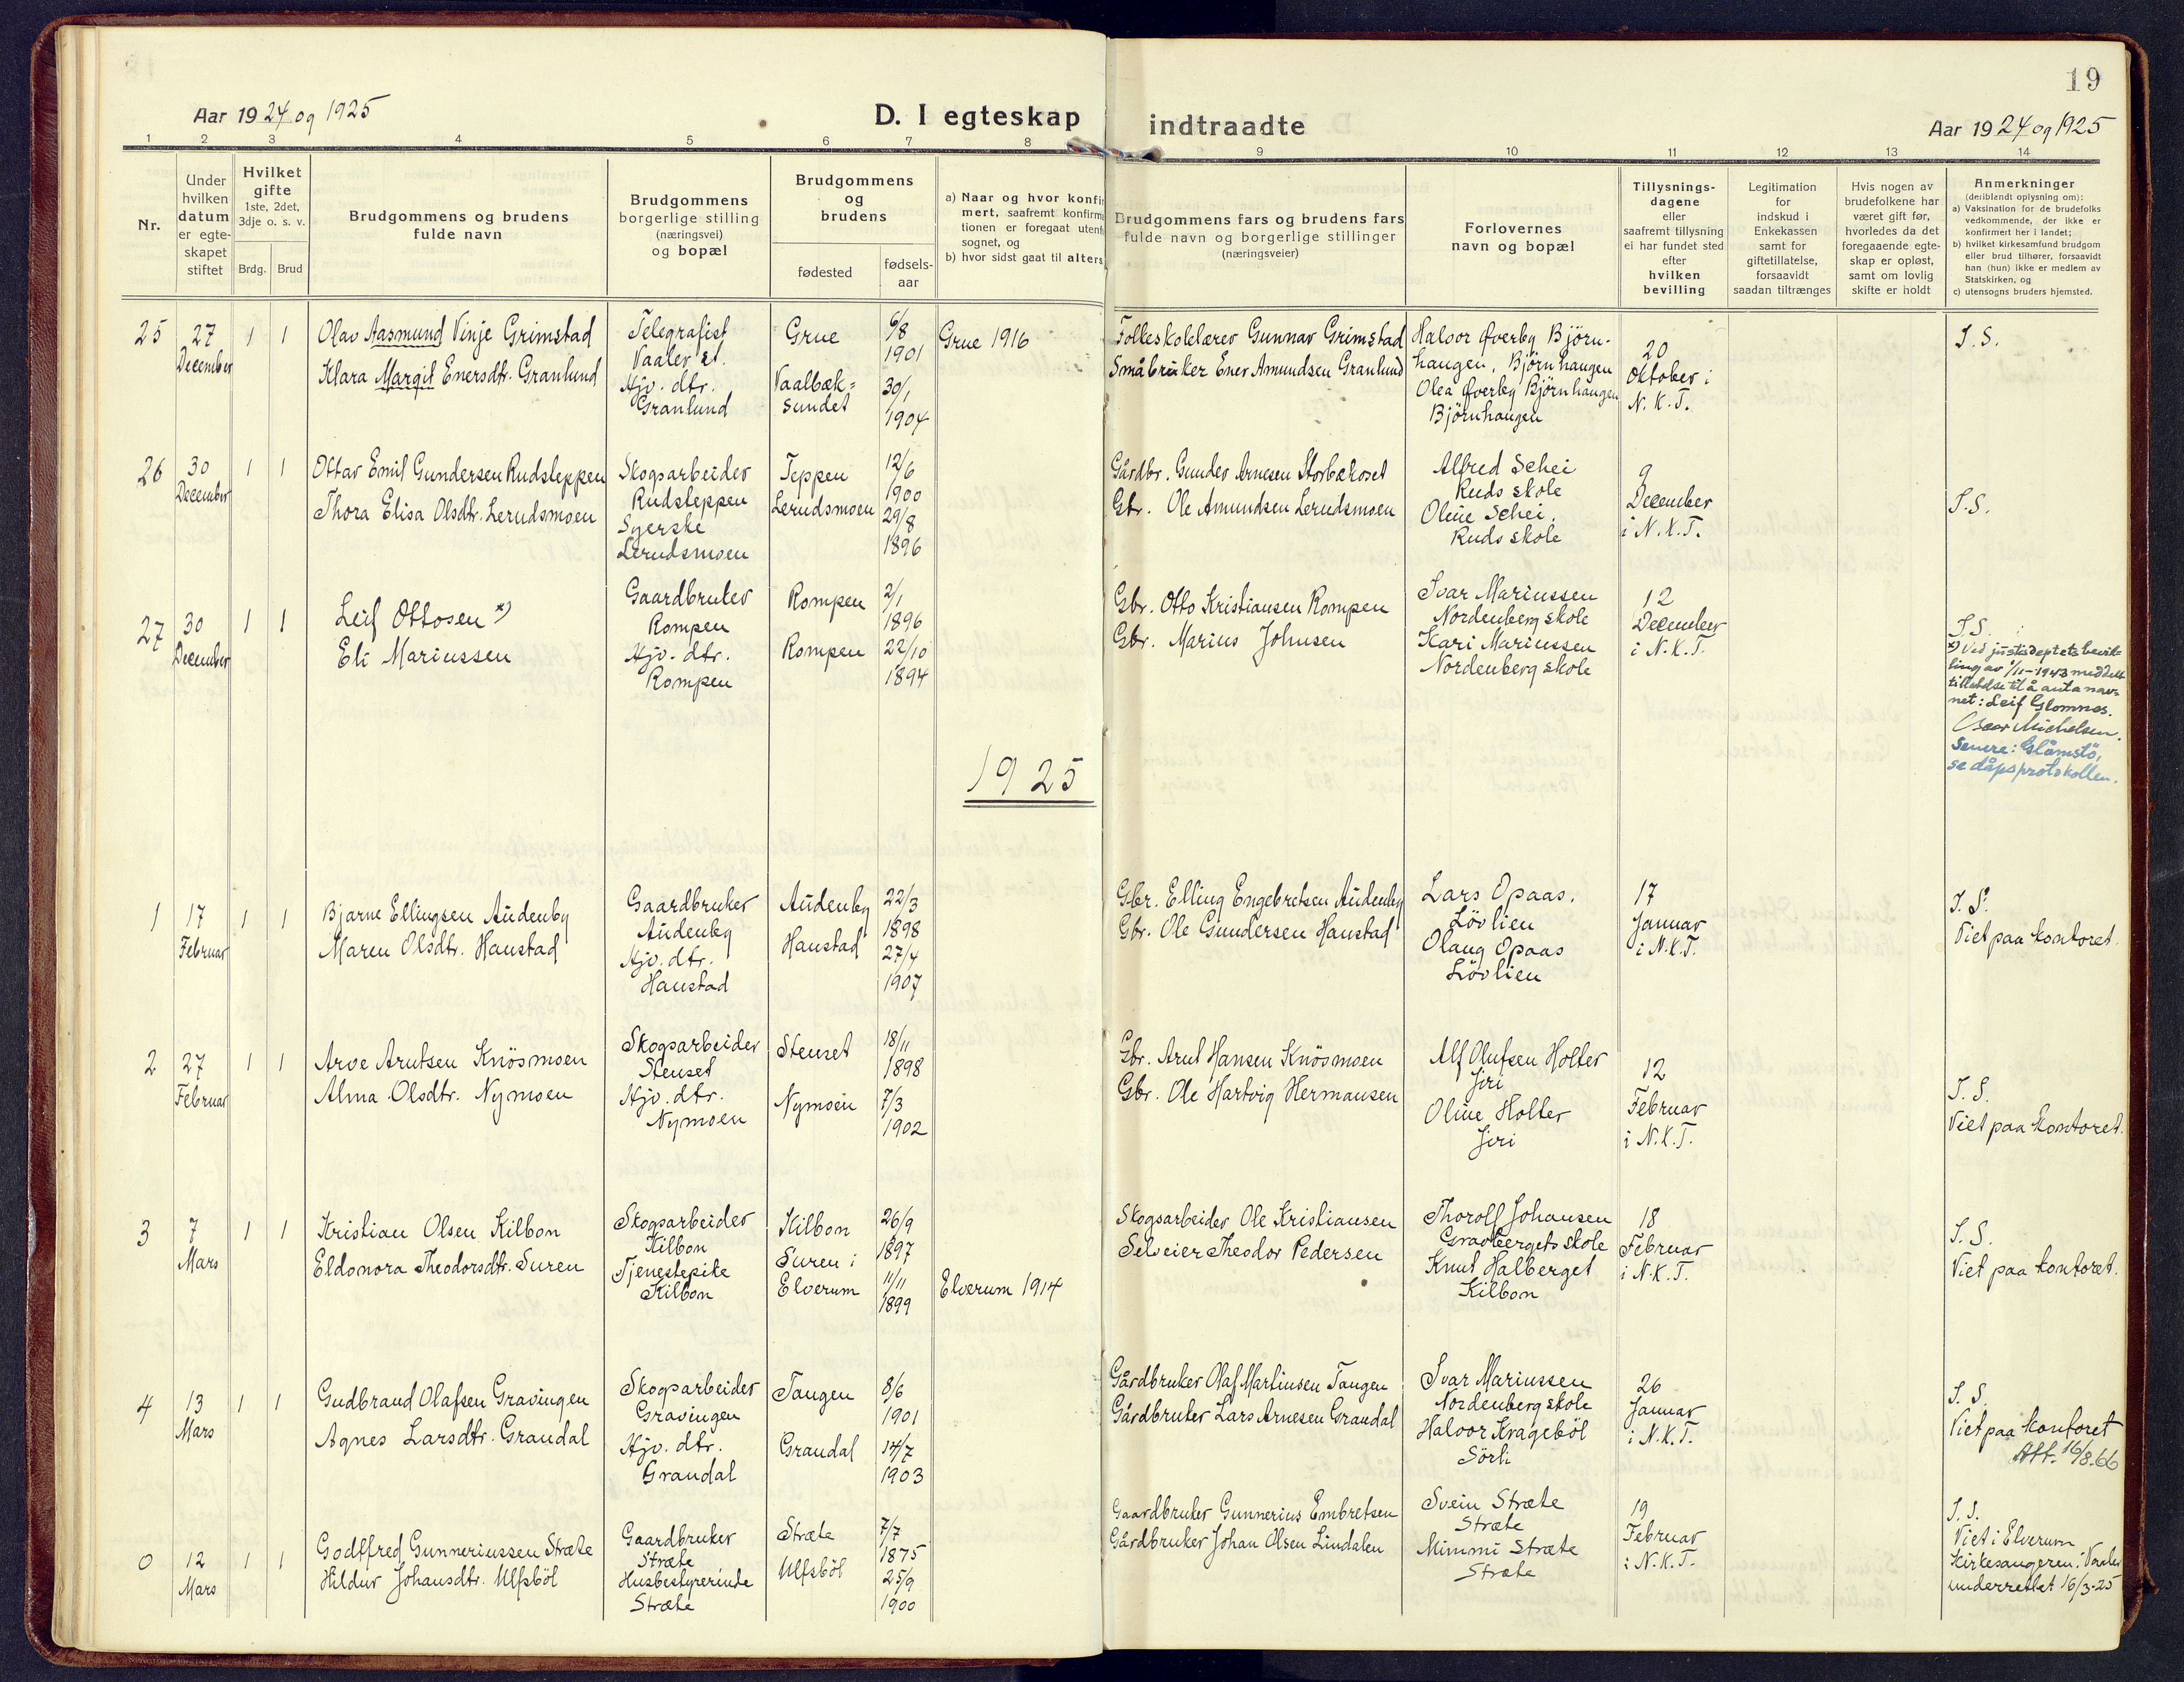 19
Aar 1924 og 1925
D. I egteskap indtraadte
Aar 1924 og 1925
1 2 3 4 5 6 7 8 9 10 11 12 13 14
Nr.
Under
hvilken
datum
er egte-
skapet
stiftet
Hvilket
gifte
1ste, 2det,
3dje o. s. v.
Brdg. Brud
Brudgommens og brudens
fulde navn
Brudgommens
borgerlige stilling
(næringsvei)
og bopæl
Brudgommens
og
brudens
fødested
fødsels-
aar
a) Naar og hvor konfir
mert, saafremt konfirma
tionen er foregaat utenfo
sognet, og
b) hvor sidst gaat til alters
Brudgommens fars og brudens fars
fulde navn og borgerlige stillinger
(næringsveier)
Forlovernes
navn og bopæl
Tillysnings-
dagene
eller
saafremt tillysning
ei har fundet sted
efter
hvilken
bevilling
Legitimation
for
indskud i
Enkekassen
samt for
giftetillatelse,
forsaavidt
saadan tiltrænges
Hvis nogen av
brudefolkene har
været gift før,
hvorledes da det
foregaaende egte-
skap er opløst,
samt om lovlig
skifte er holdt
Anmerkninger
(deriblandt oplysning om):
a) Vaksination for de brudefolks
vedkommende, der ikke er
konfirmert her i landet;
b) hvilket kirkesamfund brudgom
eller brud tilhører, forsaavidt
han (hun) ikke er medlem av
Statskirken, og
c) utensogns bruders hjemsted.
25
27
December
1 1
Olav Aasmund Vinje Grimstad
Klara Margit Enersdtr. Granlund
Telegrafist
Vaaler st.
Hjv. dtr.
Granlund
Grue
Vaalbæk=
sundet
6/8
1901
30/1
1904
Grue 1916
Folkeskolelærer Gunnar Grimstad
Småbruker Ener Amundsen Granlund
Halvor Øverby Björn-
haugen, Björnhaugen
Olea Øverby Björnhaugen
Björnhaugen
20
Oktober i
N. K. T.
S. S.
26
30
December
1 1
Ottar Emil Gundersen Rudsteppen
Thora Elisa Olsdtr. Lerudsmoen
Skogsarbeider
Rudsteppen
Syerske
Lerudsmoen
Teppen
Lerudsmoen
12/6
1900
29/8
1896
Gårdbr. Gunder Arnesen Storbækoset
Gbr. Ole Amundsen Lerudsmoen
Alfred Schei
Ruds skole
Oline Schei,
Ruds skole
9
December
i N. K. T.
S. S.
27
30
December
1 1
Leif Ottosen *)
Eli Mariussen
Gaardbruker
Rompen
Hjv. dtr.
Rompen
Rompen
Rompen
2/1
1896
22/10
1894
Gbr. Otto Kristiansen Rompen
Gbr. Marius Johnsen
Ivar Mariussen
Nordenberg skole
Kari Mariussen
Nordenberg skole
12
December
i N. K. T.
S. S.
*) Ved justisdeptets bevil-
ling av 1/11-1943 meddelt
tillatelse til å anta nav-
net: Leif Glomnes.
Oscar Michelsen.
Senere: Glåmstö,
se dåpsprotokollen.
1925
1
17
Februar
1 1
Bjarne Ellingsen Audenby
Maren Olsdtr. Haustad
Gaardbruker
Audenby
Hjv. dtr.
Haustad
Audenby
Haustad
22/3
1898
27/4
1907
Gbr. Elling Engebretsen Audenby
Gbr. Ole Gundersen Haustad
Lars Opaas,
Lövlien
Olaug Opaas
Lövlien
17
Januar
i N. K. T.
S. S.
Viet paa kontoret.
2
27
Februar
1 1
Arve Arntsen Knösmoen
Alma Olsdtr. Nymoen
Skogsarbeider
Stenset
Hjv. dtr.
Nymoen
Stenset
Nymoen
18/11
1898
7/3
1902
Gbr. Arnt Hansen Knösmoen
Gbr. Ole Hartvig Hermansen
Alf Olufsen Holter
Jiri
Oline Holter
Jiri
12
Februar
i N. K. T.
S. S.
Viet paa kontoret.
3
7
Mars
1 1
Kristian Olsen Kilbon
Eldonora Theodorsdtr. Suren
Skogsarbeider
Kilbon
Tjenestepike
Kilbon
Kilbon
Suren i
Elverum
26/9
1897
11/11
1899
Elverum 1914
Skogsarbeider Ole Kristiansen
Selveier Theodor Pedersen
Thorolf Johansen
Gravbergets skole
Knut Halberget
Kilbon
18
Februar
i N. K. T.
S. S.
Viet paa kontoret.
4
13
Mars
1 1
Gudbrand Olafsen Gravingen
Agnes Larsdtr. Grandal
Skogsarbeider
Gravingen
Hjv. dtr.
Grandal
Tangen
Grandal
8/6
1901
14/7
1903
Gårdbruker Olaf Martinsen Tangen
Gårdbruker Lars Arnesen Grandal
Ivar Mariussen
Nordenberg skole
Halvor Krageböl
Sörli
26
Januar
i N. K. T.
S. S.
Viet paa kontoret
Att. 16/8.66
0
12
Mars
1 1
Godtfred Gunneriussen Stræte
Hildur Johansdtr. Ulfsböl
Gaardbruker
Stræte
Husbestyrerinde
Stræte
Stræte
Ulfsböl
7/7
1875
25/9
1900
Gaardbruker Gunnerius Embretsen
Gårdbruker Johan Olsen Lindalen
Svein Stræte
Stræte
Mimmi Stræte
Stræte
19
Februar
i N. K. T.
S. S.
Viet i Elverum
Kirkesangeren i Vaaler
underrettet 16/3-25